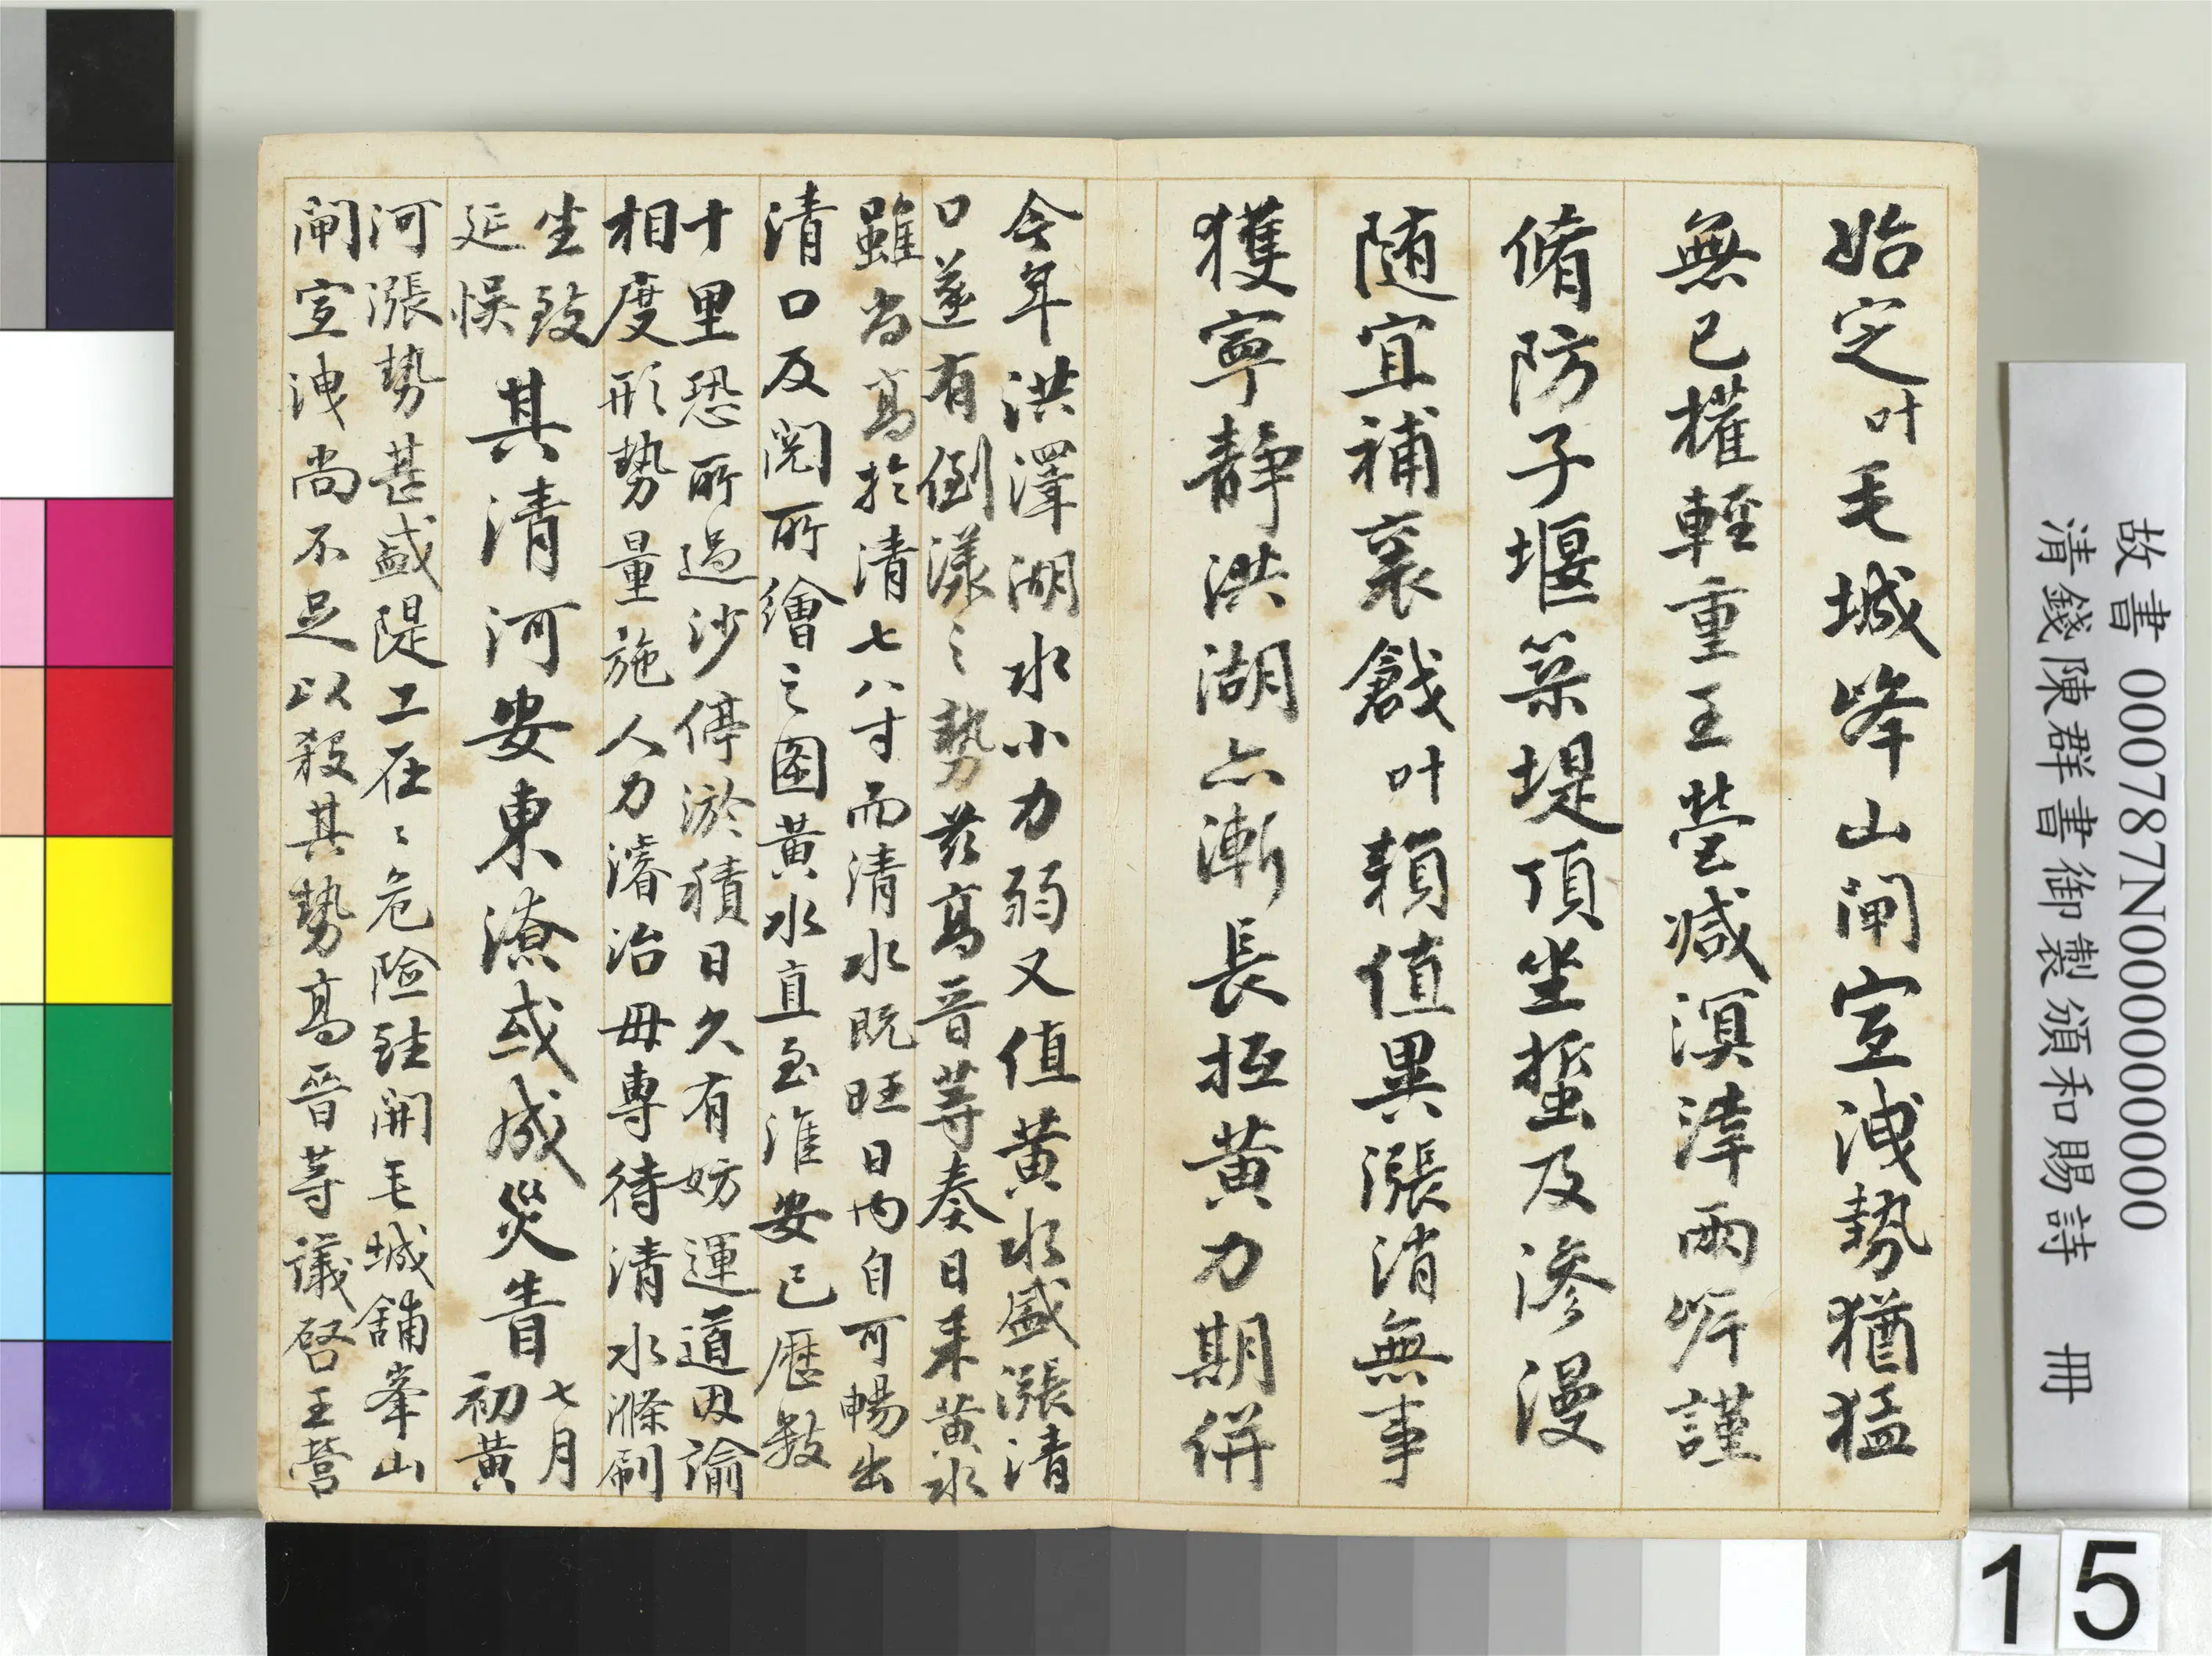 始定叶毛城峰山閘宣洩勢猶猛
無已權輕重王營減溟涬兩岍謹
脩防子堰築堤頂坐蟄及滲漫
隨宜補裒戧叶賴值異漲消無事
獲寧靜洪湖亦漸長抵黃力期併
今年洪澤湖水小力弱又值黃水盛漲清
口遂有倒漾之勢茲高晋等奏日來黃水
雖尚高於清七八寸而清水既旺日內自可暢出
清口及閱所繪之圖黃水直至淮安已歷数
十里恐所過沙停淤積日久有妨運道因諭
相度形勢量施人力濬治毋專待清水滌刷
坐致
延悞
其清河安東潦或成災眚
七月
初黃
河漲勢甚盛隄工在〻危險註開毛城舖峯山
閘宣洩尚不足以殺其勢高晋等議啓王營
故書 000787N000000000
清錢陳群書御製頒和賜詩 冊
15